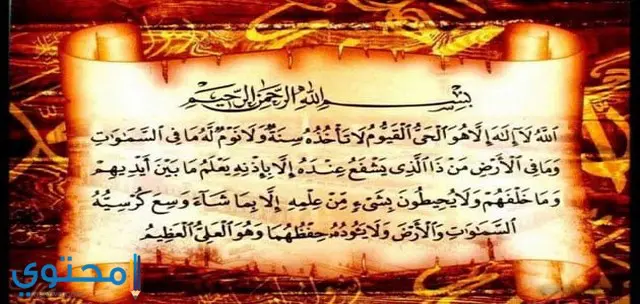 بِسْمِ اللَّهِ الرَّحْمَنِ الرَّحِيمِ
اللَّهُ لَا إِلَهَ إِلَّا هُوَ الْحَيُّ الْقَيُّومُ لَا تَأْخُذُهُ سِنَةٌ وَلَا نَوْمٌ لَهُ مَا فِي السَّمَوَاتِ
وَمَا فِي الْأَرْضِ مَنْ ذَا الَّذِي يَشْفَعُ عِنْدَهُ إِلَّا بِإِذْنِهِ يَعْلَمُ مَا بَيْنَ أَيْدِيهِمْ
وَمَا خَلْفَهُمْ وَلَا يُحِيطُونَ بِشَيْءٍ مِنْ عِلْمِهِ إِلَّا بِمَا شَاءَ وَسِعَ كُرْسِيُّهُ
السَّمَوَاتِ وَالْأَرْضَ وَلَا يَئُودُهُ حِفْظُهُمَا وَهُوَ الْعَلِيُّ الْعَظِيمُ
محتوي